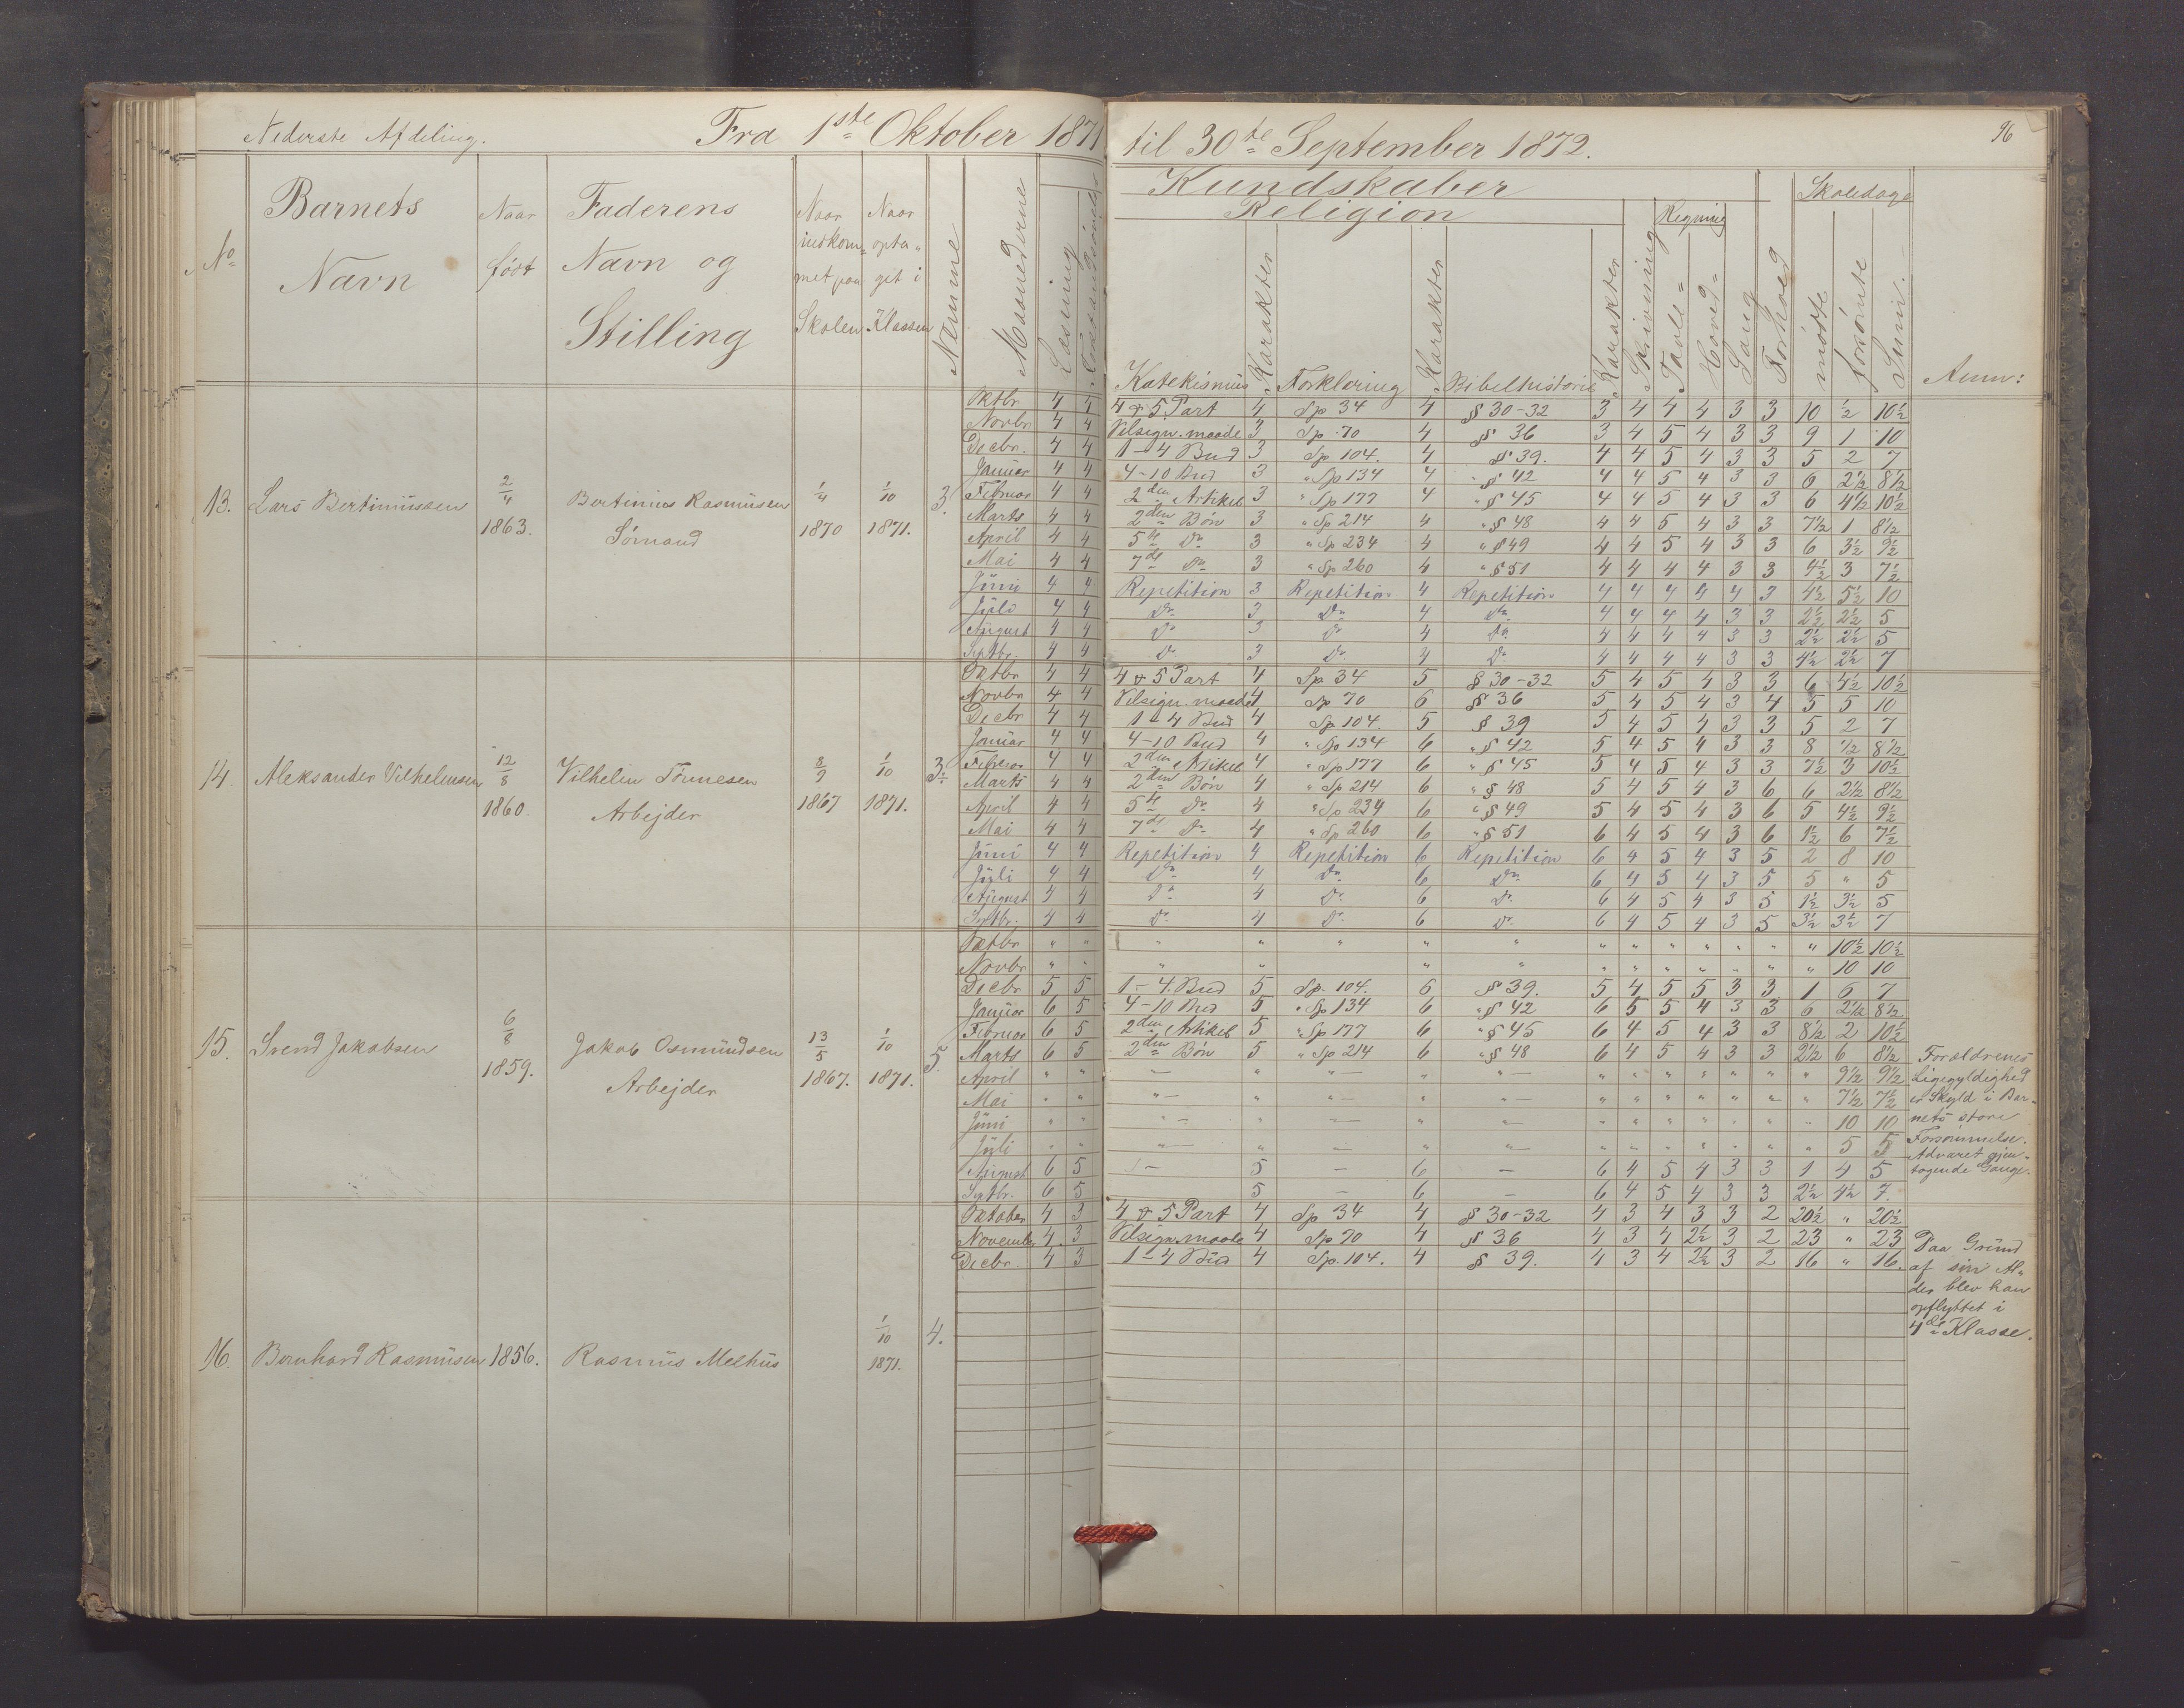 Nederste Afdeling. Fra 1ste Oktober 1871 til 30te September 1872. 96
Kundskaber
Religion Regning Skoledage
No Barnets Navn Naar født Faderens Navn og Stilling Naar indkommet paa Skolen Naar optagit i Klassen Nemme Maanederne Læsning
Katekismus Karakter Forklering Karakter Bibelhistorie Karakter Skrivning Tavle= Hoved= Sang Forhold mødte forsømte Sum. Anm:
13. Lars Bertiniussen 2/4 1863. Bertinius Rasmussen Sömand 1/4 1870 1/10 1871. 3.
Oktbr 4 4 4 & 5 Part 4 Sp 34 4 § 30-32 3 4 4 4 3 3 10 ½ 10½
Novbr 4 4 Velsign. maade 3 Sp 70 4 § 36 3 4 5 4 3 3 9 1 10
Decbr. 4 4 1-4 Bud 3 Sp 104. 4 § 39. 4 4 5 4 3 3 5 2 7
Januar 4 4 4-10 Bud 3 " Sp 134 4 " § 42 4 4 5 4 3 3 6 2½ 8½
Februar 4 4 2den Artikel 3 " Sp 177 4 " § 45 4 4 5 4 3 3 6 4½ 10½
Marts 4 4 2den Bön 3 " Sp 214 4 " § 48 4 4 5 4 3 3 7½ 1 8½
April 4 4 5te Do 3 " Sp 234 4 " § 49 4 4 5 4 3 3 6 3½ 9½
Mai 4 4 7de Do 3 " Sp 260 4 " § 51 4 4 4 4 3 3 4½ 3 7½
Juni 4 4 Repetition 3 Repetition 4 Repetition 4 4 4 4 4 3 4½ 5½ 10
Juli 4 4 Do 3 Do 4 Do 4 4 4 4 3 3 2½ 2½ 5
August 4 4 Do 3 Do 4 Do 4 4 4 4 3 3 2½ 2½ 5
Septbr. 4 4 Do 3 Do 4 Do 4 4 4 4 3 3 4½ 2½ 7
14. Aleksander Vilhelmsen 12/8 1860. Vilhelm Tönnesen Arbejder 8/7 1867 1/10 1871. 3½
Oktbr 4 4 4 & 5 Part 4 Sp 34 5 § 30-32 5 4 5 4 3 3 6 4½ 10½
Novbr 4 4 Velsign. maade 4 Sp 70 6 § 36 5 4 5 4 3 4 5 5 10
Decbr 4 4 1-4 Bud 4 Sp 104. 5 § 39 5 4 5 4 3 3 5 2 7
Januar 4 4 4-10 Bud 4 " Sp 134 6 " § 42 5 4 5 4 3 3 8 ½ 8½
Februar 4 4 2den Artikel 4 " Sp 177 6 " § 45 5 4 5 4 3 3 7½ 3 10½
Marts 4 4 2den Bön 4 " Sp 214 6 " § 48 5 4 5 4 3 6 6 2½ 8½
April 4 4 5te Do 4 " Sp 234 6 " § 49 5 4 5 4 3 6 5 4½ 9½
Mai 4 4 7de Do 4 " Sp 260 6 " § 51 6 4 5 4 3 6 1½ 6 7½
Juni 4 4 Repetition 4 Repetition 6 Repetition 6 4 5 4 3 5 2 8 10
Juli 4 4 Do 4 Do 6 Do 6 4 5 4 3 5 5 " 5
August 4 4 Do 4 Do 6 Do 6 4 5 4 3 5 1½ 3½ 5
Septbr. 4 4 Do 4 Do 6 Do 6 4 5 4 3 5 3½ 3½ 7
15. Svend Jakobsen 6/8 1859. Jakob Osmundsen Arbejder 13/5 1867. 1/10 1871. 5.
Oktbr " " " " " " " " " " " " " " 10½ 10½
Novbr " " " " " " " " " " " " " 10 10
Decbr 5 5 1-4. Bud 5 Sp. 104. 6 § 39. 5 4 5 5 3 3 1 6 7
Januar 6 5 4-10 Bud 5 " Sp 134 6 " § 42 6 5 5 4 3 3 6 2½ 8½
Februar 6 5 2den Artikel 5 " Sp 177 6 " § 45 6 4 5 4 3 3 8½ 2 10½
Marts 6 5 2den Bön 5 " Sp 214 6 " § 48 6 4 5 4 3 3 2½ 6 8½
April " " " " " " " " " " " " " " 9½ 9½
Mai " " " " " " " " " " " " " " 7½ 7½
Juni " " " " " " " " " " " " " " 10 10
Juli " " " " " " " " " " " " " " 5 5
August 6 5 - 5 - 6 - 6 4 5 4 3 3 1 4 5
Septbr. 6 5 5 - 6 - 6 4 5 4 3 3 2½ 4½ 7.
Foraldrenes
Ligegyldighed
er Skyld i Bar-
nets store
Forsömmelse.
Advaret gjen-
tagende Gange.
16. Bernhard Rasmussen 1856. Rasmus Melhus 1/10 1871. 4.
Oktober 4 3 4 & 5 Part 4 Sp 34 4 § 30-32 4 3 4 3 3 2 20½ " 20½
November 4 3 Velsign. maade 4 Sp 70 4 § 36 4 3 4 2½ 3 2 23 " 23
Decbr. 4 3 1-4 Bud 4 Sp. 104. 4 § 39. 4 3 4 2½ 3 2 16 " 16.
Paa Grund
af sin Al-
der blev han
opflyttet i
4de Klasse.